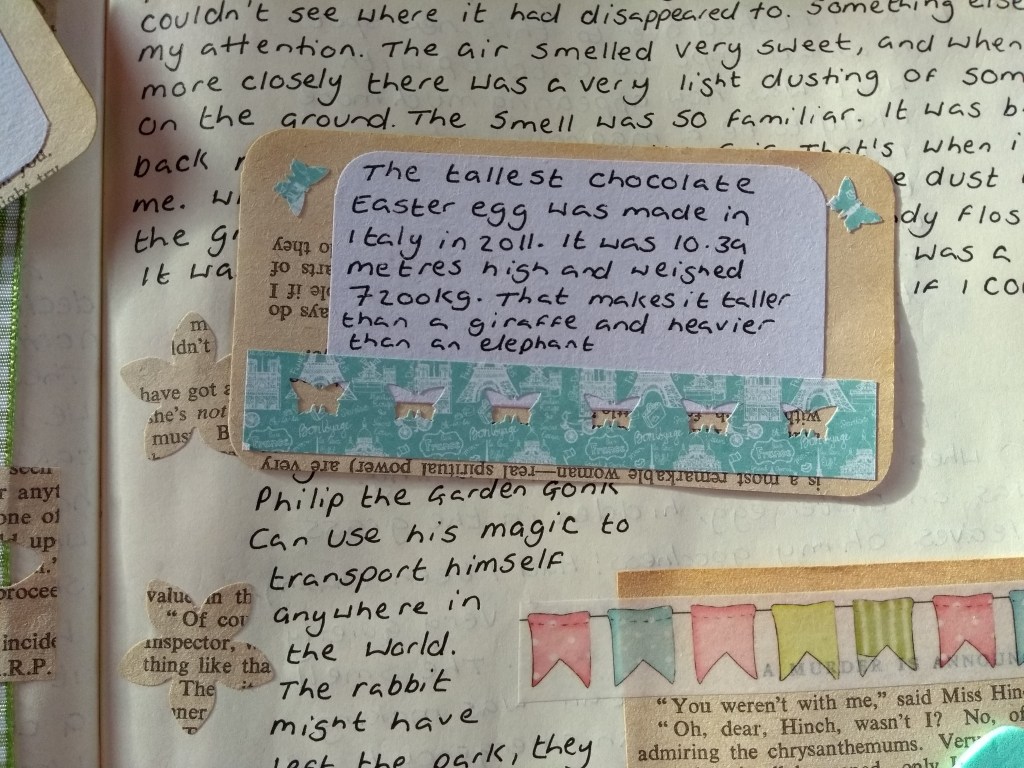 couldn't see where it had disappeared to. Something else
my attention. The air smelled very sweet, and when
more closely there was a very light dusting of som
on the ground. The smell was so familiar. It was b
back
That's when i
me.
e dust
the gr
dy flos
was a
It wa
If I cou
The tallest chocolate
Easter egg was made in
Italy in 2011. It was 10.39
metres high and weighed
7200kg. That makes it taller
than a giraffe and heavier
than an elephant
o they
arts of
ple if I
ays do
with
is a most remarkable woman—real spiritual power) are) very
m
ldn't
have got a
she's not
mus B
Philip the Garden Gonk
Can use his magic to
transport himself
anywhere in
the world.
The rabbit
might have
left the park, they
value in th
"Of cou
inspector,
thing like tha
The
ner
seen
r anyt
one of
up
procee
incide
.R.P.
A MURDER IS ANNOUN
"You weren't with me," said Miss Hinc
"Oh, dear, Hinch, wasn't I? No, of
admiring the chrysanthemums. Very
only